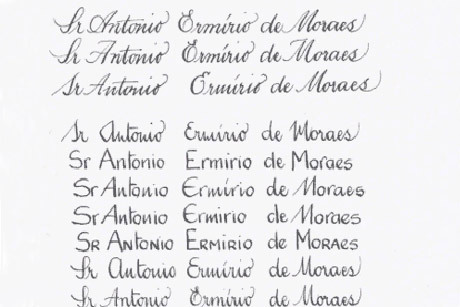 Sr Antonio Ermírio de Moraes
Sr Antonio Ermírio de Moraes
Sr Antonio Ermírio de Moraes
Sr Antonio Ermírio de Moraes
Sr Antonio Ermirio de Moraes
Sr Antonio Ermírio de Moraes
Sr Antonio Ermirio de Moraes
SR ANTONIO ERMIRIO DE MORAES
Sr Antonio Ermírio de Moraes
Sr Antonio Ermírio de Moraes